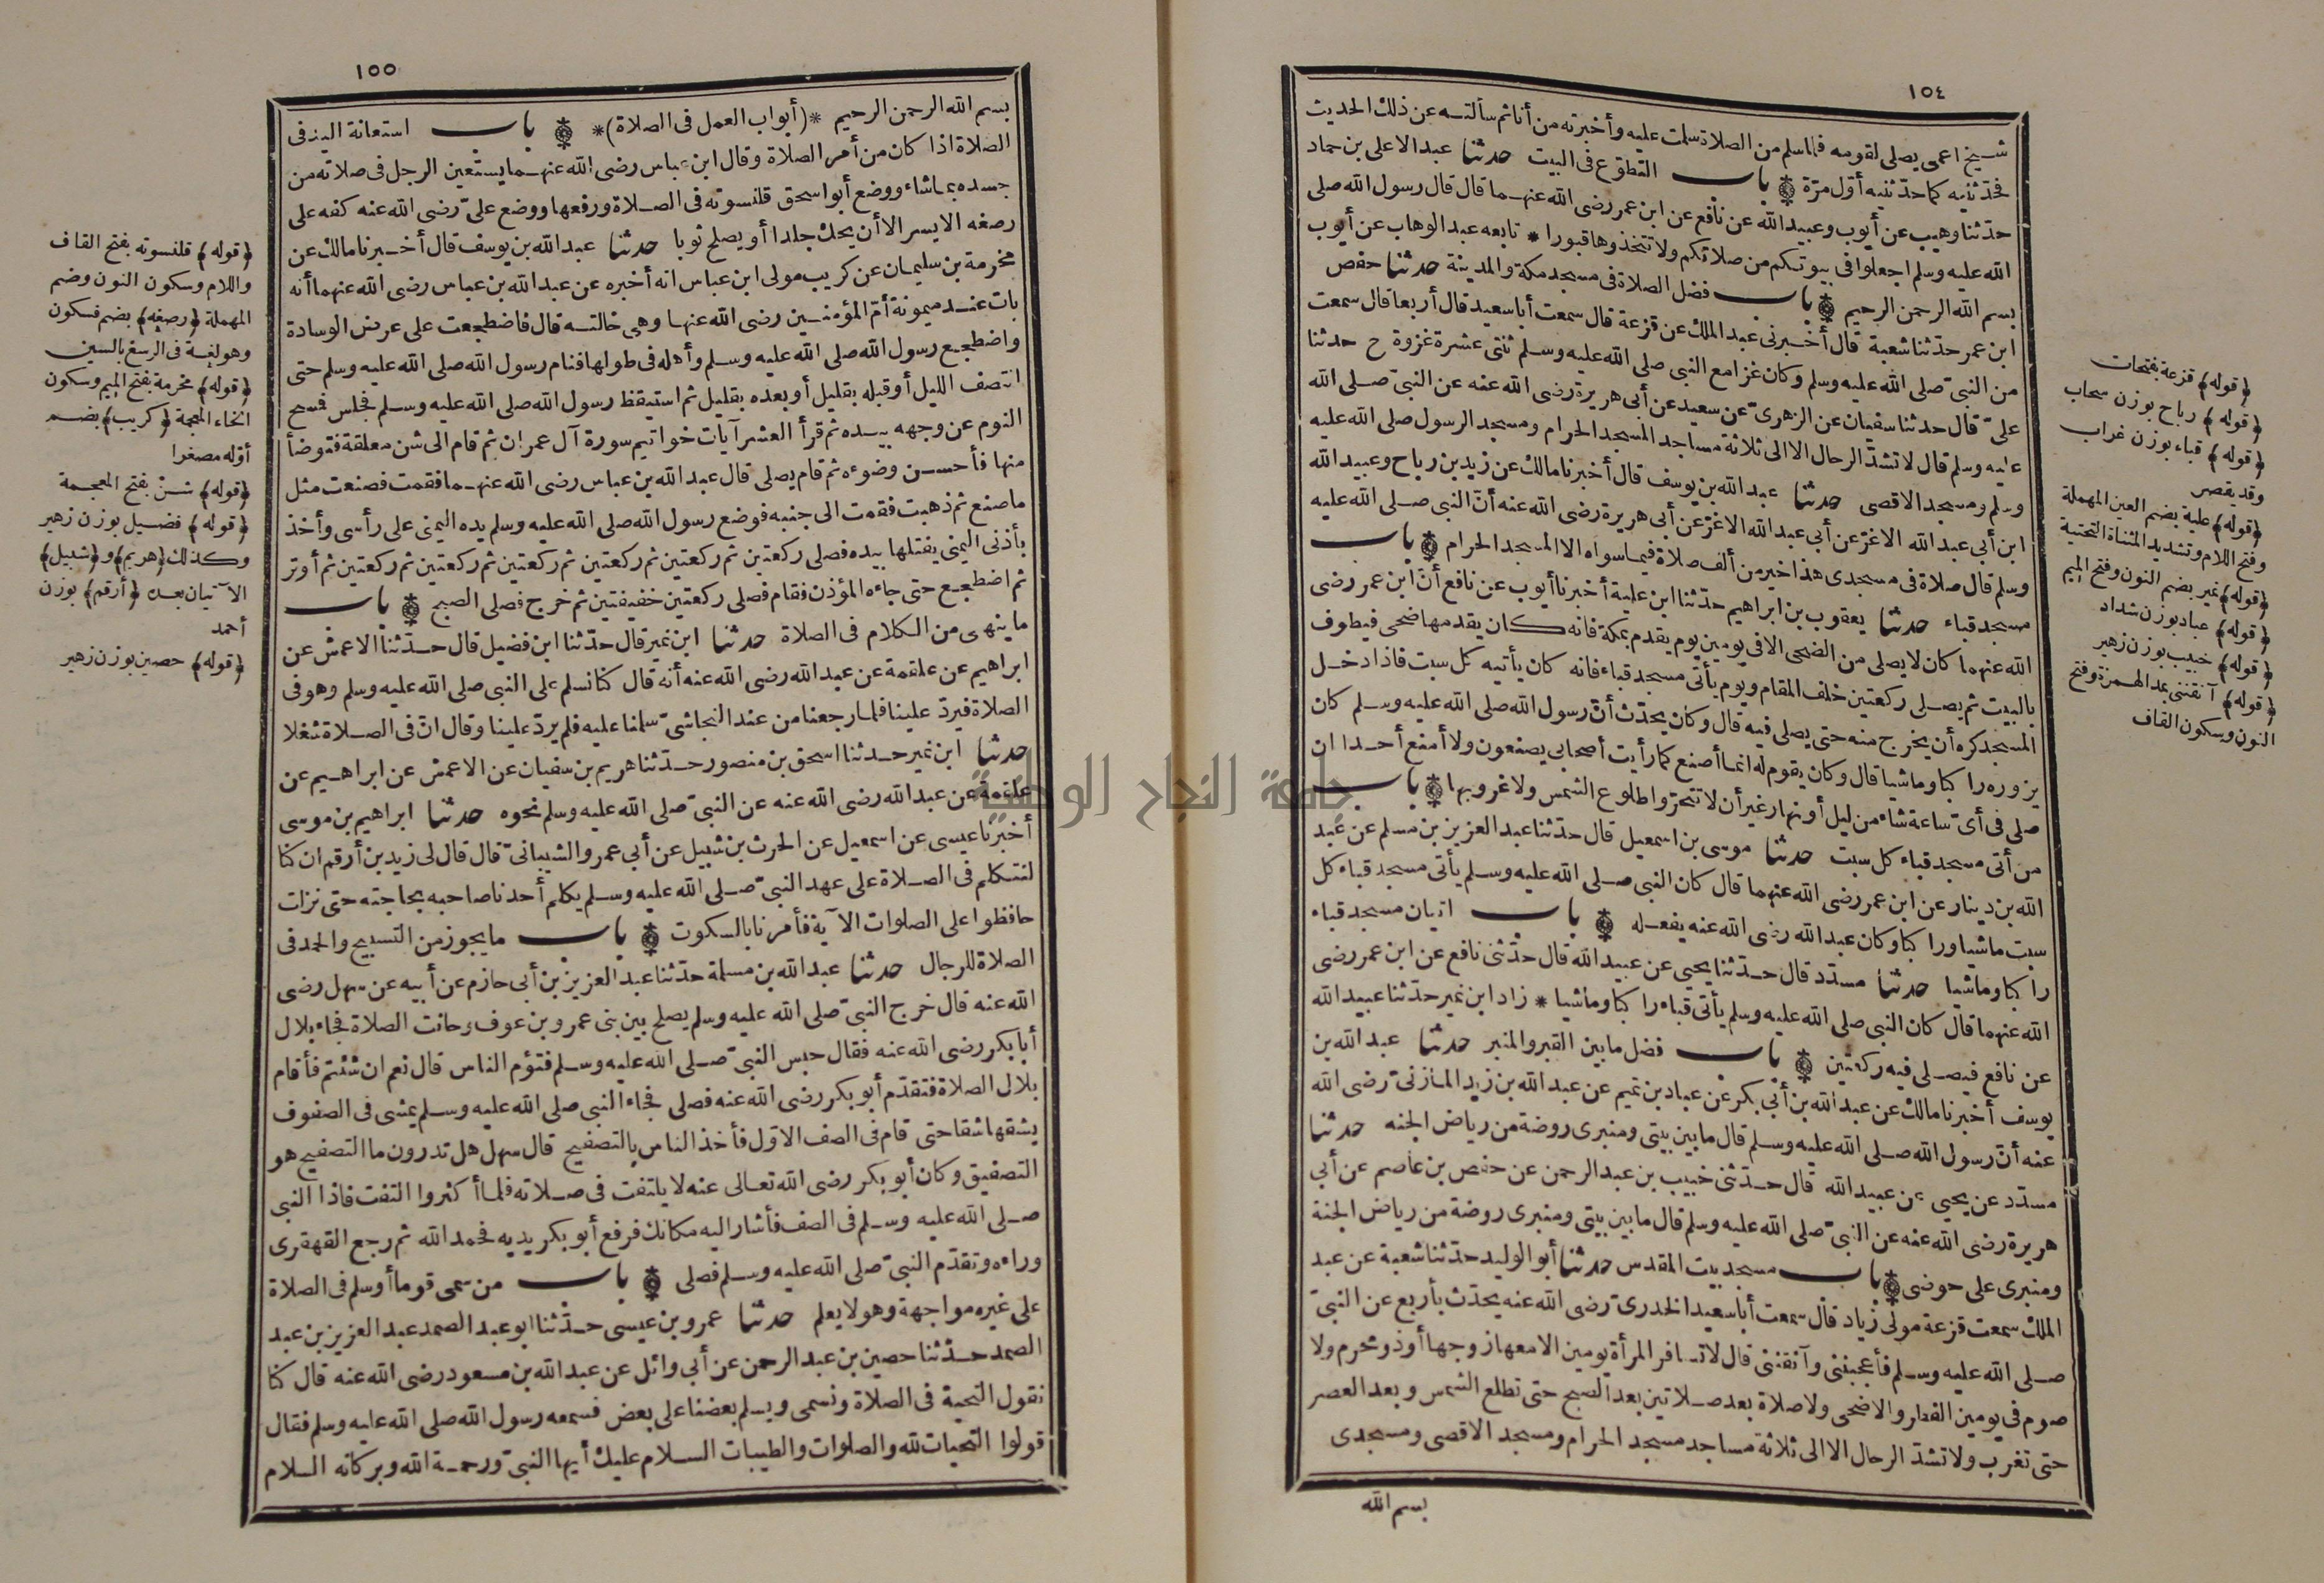 ١٥٤
شيخا عمى يصلى لقومه فلما سلم من الصلاة سلمت عليه وأخبرته من أنا ثم سألته عن ذلك الحديث
فحدّثنيه كما حدّثنيه أوّل مرّة باب التطوّع فى البيت حدثنا عبد الاعلى بن حماد
حدّثنا وهيب عن أيوب وعبيد الله عن نافع عن ابن عمر رضى الله عنهما قال قال رسول الله صلى
الله عليه وسلم اجعلوا فى بيوتكم من صلاتكم ولا تتخذوها قبورا * تابعه عبد الوهاب عن أيوب
بسم الله الرحمن الرحيم باب فضل الصلاة فى مسجد مكة والمدينة حدثنا حفص
ابن عمر حدّثنا شعبة قال أخبرنى عبد الملك عن قزعة قال سمعت أبا سعيد قال أربعا قال سمعت
من النبىّ صلى الله عليه وسلم وكان غزا مع النبى صلى الله عليه وسلم ثنتى عشرة غزوة ح حدثنا
علىّ قال حدثنا سفيان عن الزهرىّ عن سعيد عن أبى هريرة رضى الله عنه عن النبىّ صلى الله
عليه وسلم قال لا تشدّ الرحال الا الى ثلاثة مساجد المسجد الحرام ومسجد الرسول صلى الله عليه
وسلم ومسجد الاقصى حدثنا عبد الله بن يوسف قال أخبرنا مالك عن زيد بن رباح وعبيد الله
ابن أبى عبد الله الاغرّ عن أبى عبد الله الاغرّ عن أبى هريرة رضى الله عنه أنّ النبى صلى الله عليه
وسلم قال صلاة فى مسجدى هذا خير من ألف صلاة فيما سواه الا المسجد الحرام باب
مسجد قباء حدثنا يعقوب بن ابراهيم حدّثنا ابن علية أخبرنا أيوب عن نافع أنّ ابن عمر رضى
الله عنهما كان لا يصلى من الضحى الا فى يومين يوم يقدم بمكة فانه كان يقدمها ضحى فيطوف
بالبيت ثم يصلى ركعتين خلف المقام ويوم يأتى مسجد قباء فانه كان يأتيه كل سبت فاذا دخل
المسجد كره أن يخرج منه حتى يصلى فيه قال وكان يحدّث أنّ رسول الله صلى الله عليه وسلم كان
يزوره راكبا وماشيا قال وكان يقوم له انما أصنع كما رأيت أصحابى يصنعون ولا أمنع أحدا ان
صلى فى أىّ ساعة شاء من ليل أو نهار غير أن لا تتحرّوا طلوع الشمس ولا غروبها باب
من أتى مسجد قباء كل سبت حدثنا موسى بن اسمعيل قال حدّثنا عبد العزيز بن مسلم عن عبد
الله بن دينار عن ابن عمر رضى الله عنهما قال كان النبى صلى الله عليه وسلم يأتى مسجد قباء كل
سبت ماشيا وراكبا وكان عبد الله رضى الله عنه يفعله باب اتيان مسجد قباء
راكبا وماشيا حدثنا مسدّد قال حدّثنا يحيى عن عبيد الله قال حدّثنى نافع عن ابن عمر رضى
الله عنهما قال كان النبى صلى الله عليه وسلم يأتى قباء راكبا وماشيا * زاد ابن نمير حدّثنا عبيد الله
عن نافع فيصلى فيه ركعتين باب فضل ما بين القبر والمنبر حدثنا عبد الله بن
يوسف أخبرنا مالك عن عبد الله بن أبى بكر عن عباد بن تميم عن عبد الله بن زيد المازنىّ رضى الله
عنه أنّ رسول الله صلى الله عليه وسلم قال ما بين بيتى ومنبرى روضة من رياض الجنه حدثنا
مسدّد عن يحيى عن عبيد الله قال حدّثنى خبيب بن عبد الرحمن عن حفص بن عاصم عن أبى
هريرة رضى الله عنه عن النبىّ صلى الله عليه وسلم قال ما بين بيتى ومنبرى روضة من رياض الجنة
ومنبرى على حوضى باب مسجد بيت المقدس حدثنا أبو الوليد حدّثنا شعبة عن عبد
الملك سمعت قزعة مولى زياد قال سمعت أبا سعيد الخدرىّ رضى الله عنه يحدّث بأربع عن النبىّ
صلى الله عليه وسلم فأعجبننى وآنقننى قال لا تسافر المرأة يومين الا معها زوجها أو ذو محرم ولا
صوم فى يومين الفطر والاضحى ولا صلاة بعد صلاتين بعد الصبح حتى تطلع الشمس وبعد العصر
حتى تغرب ولا تشدّ الرحال الا الى ثلاثة مساجد مسجد الحرام ومسجد الاقصى ومسجدى
بسم الله
﴿قوله﴾ قزعة بفتحات
﴿قوله﴾ رباح بوزن سحاب
﴿قوله﴾ قباء بوزن غراب
وقد يقصر
﴿قوله﴾ علية بضم العين المهملة
وفتح اللام وتشديد المثناة التحتية
﴿قوله﴾ نمير بضم النون وفتح الميم
﴿قوله﴾ عباد بوزن شداد
﴿قوله﴾ خبيب بوزن زهير
﴿قوله﴾ آنقننى بمد الهمزة وفتح
النون وسكون القاف
١٥٥
بسم الله الرحمن الرحيم *(أبواب العمل فى الصلاة)* باب استعانة اليد فى
الصلاة اذا كان من أمر الصلاة وقال ابن عباس رضى الله عنهما يستعين الرجل فى صلاته من
جسده بما شاء ووضع أبو اسحق قلنسوته فى الصلاة ورفعها ووضع علىّ رضى الله عنه كفه على
رصغه الايسر الا أن يحك جلدا أو يصلح ثوبا حدثنا عبد الله بن يوسف قال أخبرنا مالك عن
مخرمة بن سليمان عن كريب مولى ابن عباس انه أخبره عن عبد الله بن عباس رضى الله عنهما أنه
بات عند ميمونة أمّ المؤمنين رضى الله عنها وهى خالته قال فاضطجعت على عرض الوسادة
واضطجع رسول الله صلى الله عليه وسلم وأهله فى طولها فنام رسول الله صلى الله عليه وسلم حتى
انتصف الليل أو قبله بقليل أو بعده بقليل ثم استيقظ رسول الله صلى الله عليه وسلم فجلس فمسح
النوم عن وجهه بيده ثم قرأ العشر آيات خواتيم سورة آل عمران ثم قام الى شن معلقة فتوضأ
منها فأحسن وضوءه ثم قام يصلى قال عبد الله بن عباس رضى الله عنهما فقمت فصنعت مثل
ما صنع ثم ذهبت فقمت الى جنبه فوضع رسول الله صلى الله عليه وسلم يده اليمنى على رأسى وأخذ
بأذنى اليمنى يفتلها بيده فصلى ركعتين ثم ركعتين ثم ركعتين ثم ركعتين ثم ركعتين ثم ركعتين ثم أوتر
ثم اضطجع حتى جاءه المؤذن فقام فصلى ركعتين خفيفتين ثم خرج فصلى الصبح باب
ما ينهى من الكلام فى الصلاة حدثنا ابن نمير قال حدّثنا ابن فضيل قال حدّثنا الاعمش عن
ابراهيم عن علقمة عن عبد الله رضى الله عنه أنه قال كنا نسلم على النبى صلى الله عليه وسلم وهو فى
الصلاة فيردّ علينا فلما رجعنا من عند النجاشىّ سلمنا عليه فلم يردّ علينا وقال انّ فى الصلاة شغلا
حدثنا ابن نمير حدثنا اسحق بن منصور حدّثنا هريم بن سفيان عن الاعمش عن ابراهيم عن
علقمة عن عبد الله رضى الله عنه عن النبىّ صلى الله عليه وسلم نحوه حدثنا ابراهيم بن موسى
أخبرنا عيسى عن اسمعيل عن الحرث بن شبيل عن أبى عمرو الشيبانىّ قال قال لى زيد بن أرقم ان كنا
لنتكلم فى الصلاة على عهد النبىّ صلى الله عليه وسلم يكلم أحدنا صاحبه بحاجته حتى نزلت
حافظوا على الصلوات الآية فأمرنا بالسكوت باب ما يجوز من التسبيح والحمد فى
الصلاة للرجال حدثنا عبد الله بن مسلمة حدّثنا عبد العزيز بن أبى حازم عن أبيه عن سهل رضى
الله عنه قال خرج النبىّ صلى الله عليه وسلم يصلح بين بنى عمرو بن عوف وحانت الصلاة فجاء بلال
أبا بكر رضى الله عنه فقال حبس النبىّ صلى الله عليه وسلم فتؤم الناس قال نعم ان شئتم فأقام
بلال الصلاة فتقدّم أبو بكر رضى الله عنه فصلى فجاء النبى صلى الله عليه وسلم يمشى فى الصفوف
يشقها شقا حتى قام فى الصف الاوّل فأخذ الناس بالتصفيح قال سهل هل تدرون ما التصفيح هو
التصفيق وكان أبو بكر رضى الله تعالى عنه لا يلتفت فى صلاته فلما أكثروا التفت فاذا النبى
صلى الله عليه وسلم فى الصف فأشار اليه مكانك فرفع أبو بكر يديه فحمد الله ثم رجع القهقرى
وراءه وتقدّم النبىّ صلى الله عليه وسلم فصلى باب من سمى قوما أو سلم فى الصلاة
على غيره مواجهة وهو لا يعلم حدثنا عمرو بن عيسى حدّثنا ابو عبد الصمد عبد العزيز بن عبد
الصمد حدّثنا حصين بن عبد الرحمن عن أبى وائل عن عبد الله بن مسعود رضى الله عنه قال كنا
نقول التحية فى الصلاة ونسمى ويسلم بعضنا على بعض فسمعه رسول الله صلى الله عليه وسلم فقال
قولوا التحيات لله والصلوات والطيبات السلام عليك أيها النبىّ ورحمة الله وبركاته السلام
﴿قوله﴾ قلنسوته بفتح القاف
واللام وسكون النون وضم
المهملة ﴿رصغه﴾ بضم فسكون
وهو لغة فى الرسغ بالسين
﴿قوله﴾ مخرمة بفتح الميم وسكون
الخاء المعجمة ﴿كريب﴾ بضم
أوّله مصغرا
﴿قوله﴾ شنّ بفتح المعجمة
﴿قوله﴾ فضيل بوزن زهير
وكذلك ﴿هريم﴾ و﴿شبيل﴾
الآتيان بعد ﴿أرقم﴾ بوزن
أحمد
﴿قوله﴾ حصين بوزن زهير
جامعة النجاح الوطنية